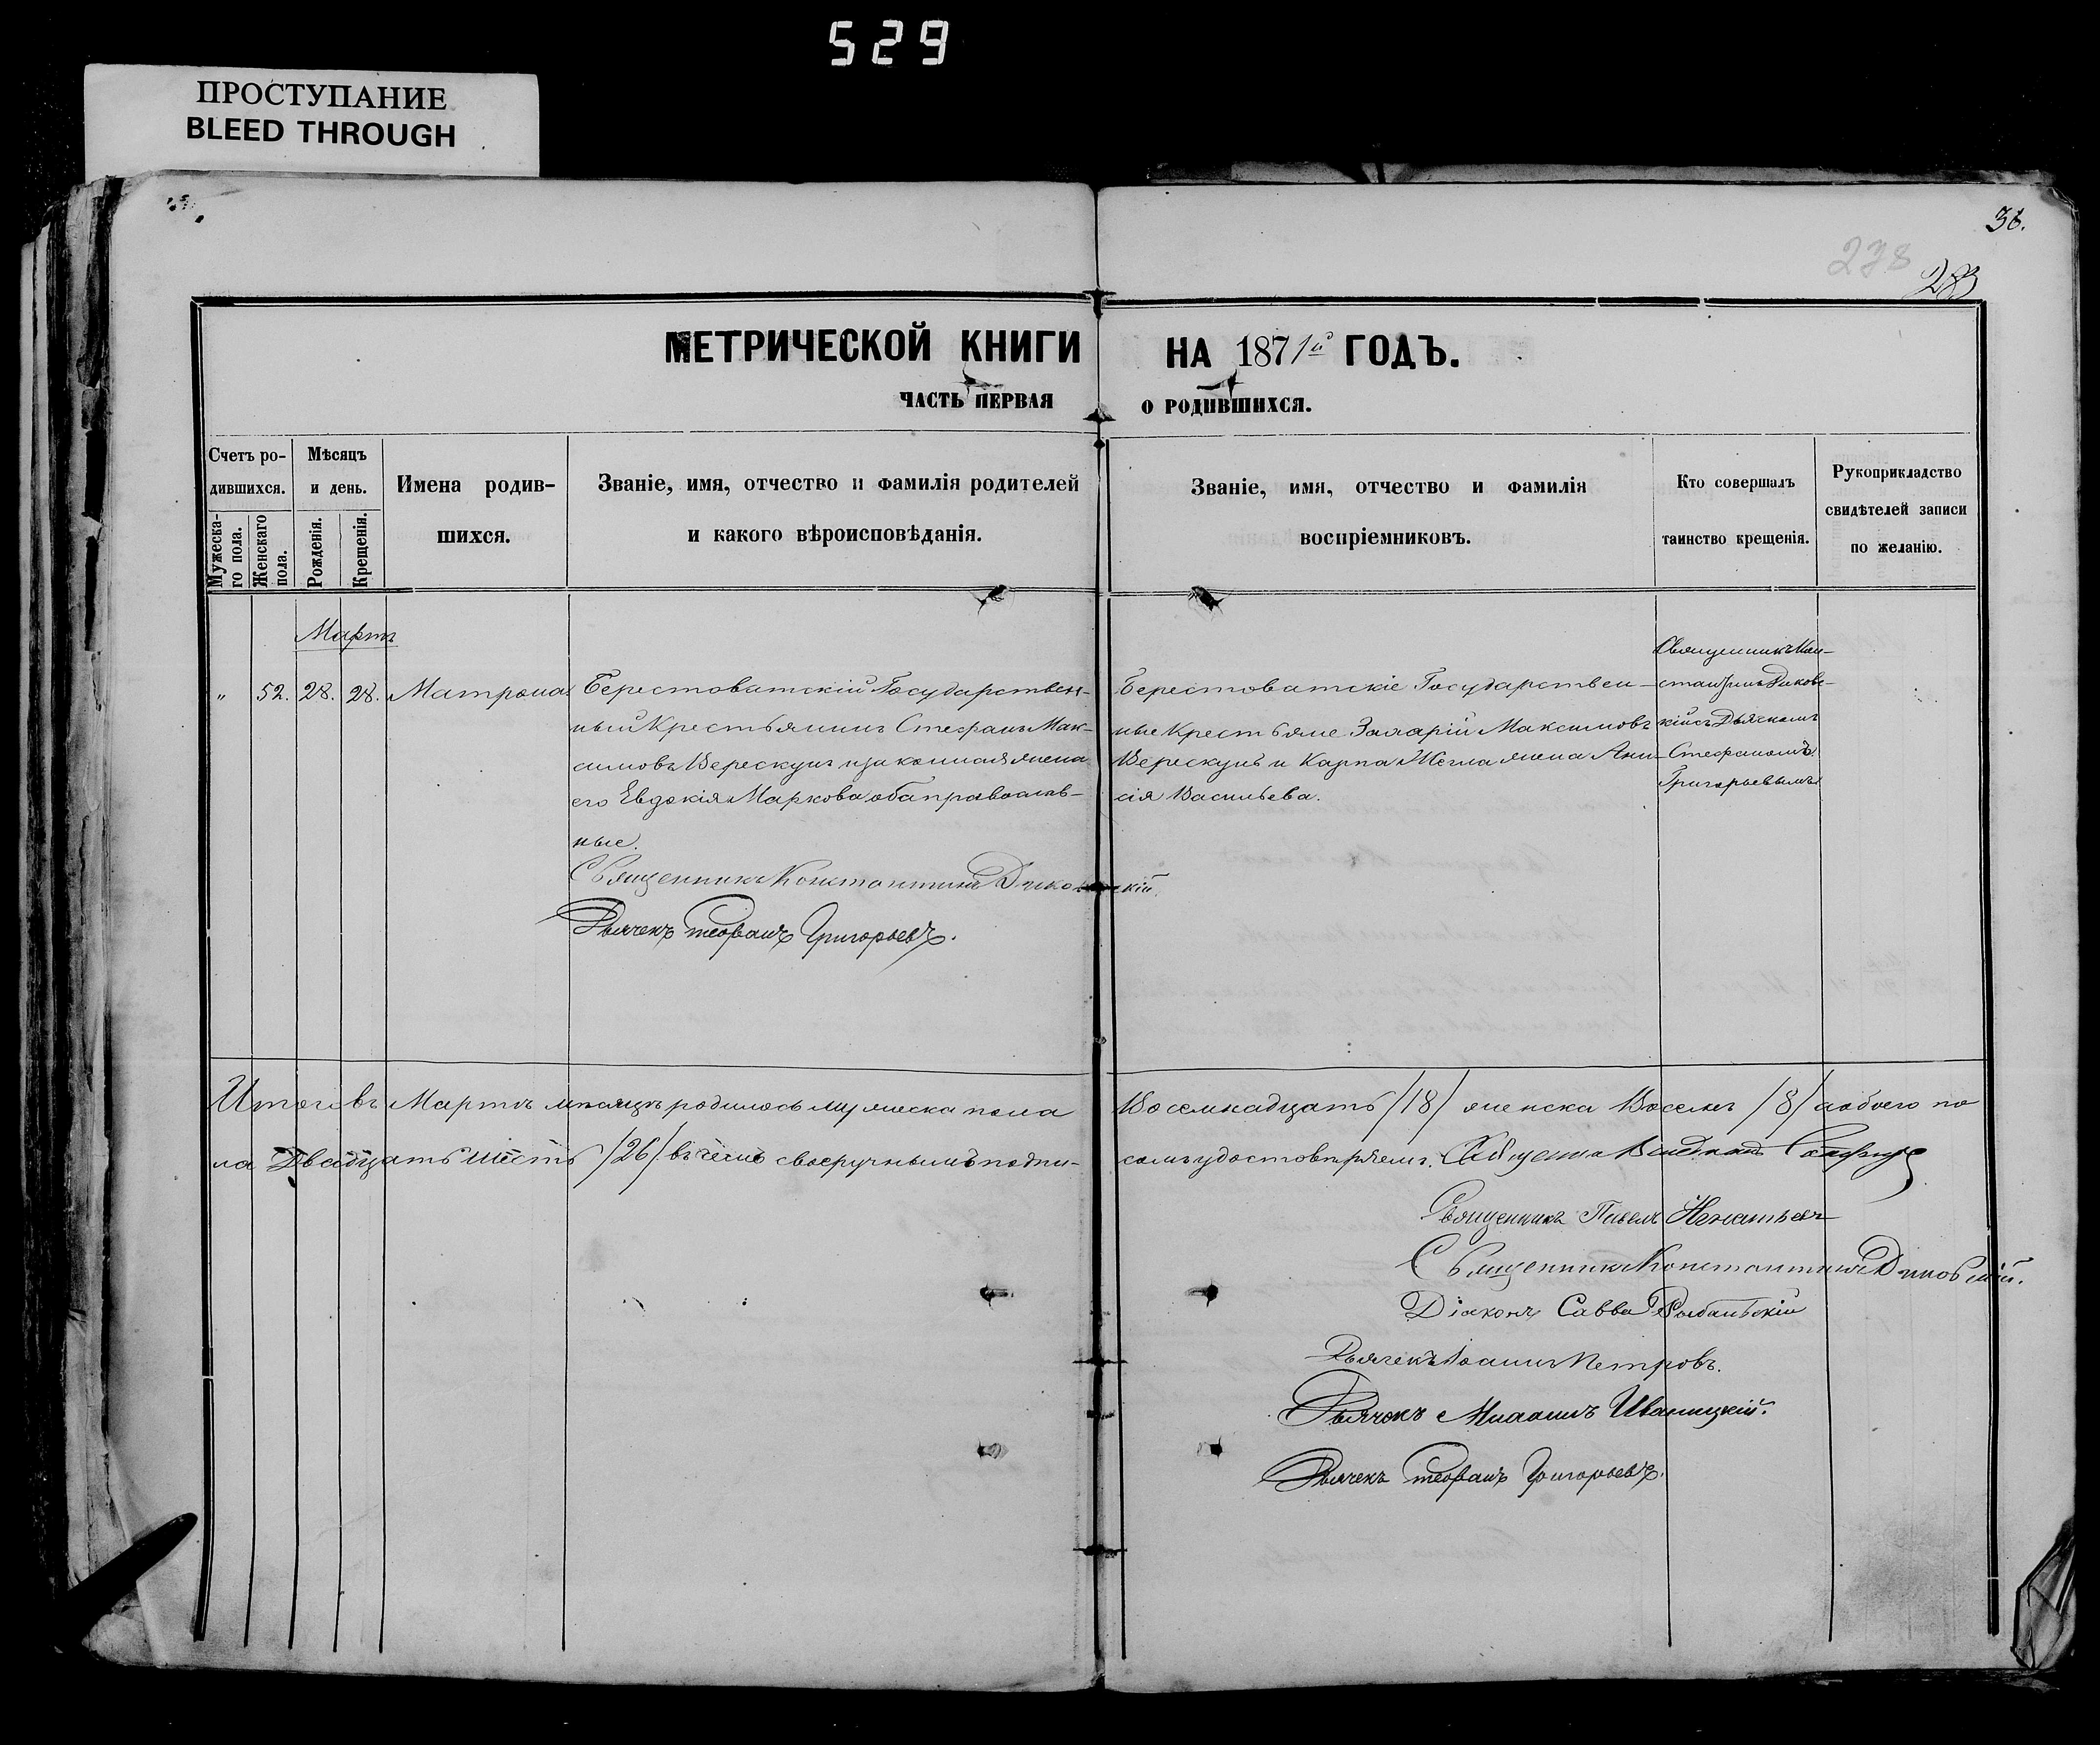 529
ПРОСТУПАНИЕ
BLEED THROUGH
36.
278
МЕТРИЧЕСКОЙ КНИГИ НА 1871й ГОДЪ.
ЧАСТЬ ПЕРВАЯ О РОДИВШИХСЯ.
Счетъ ро-
дившихся.
Мужеска-
го пола.
Женскаго
пола.
Мѣсяцъ
и день.
Рожденія.
Крещенія.
Имена родив-
шихся.
Званіе, имя, отчество и фамилія родителей
и какого вѣроисповѣданія.
Званіе, имя, отчество и фамилія
воспріемниковъ.
Кто совершалъ
таинство крещенія.
Рукоприкладство
свидѣтелей записи
по желанію.
Мартъ
" 52. 28. 28. Матрона
Берестоватскій Государствен-
ный Крестьянинъ Стефанъ Мак-
симовъ Верескунъ и законная жена
его Евдокія Маркова оба православ-
ные.
Священникъ Константинъ Диковскій
Дьячекъ Стефанъ Григорьевъ.
Берестоватскіе Государствен-
ные Крестьяне Захарій Максимовъ
Верескунъ и Карпа Жегла жена Ани-
сія Васильева.
Священникъ Кон-
стантинъ Диковс-
кій съ Дьячкомъ
Стефаномъ
Григорьевымъ
Итого въ Мартѣ мѣсяцѣ родилось мужеска пола Восемнадцать /18/ женска Восемь /8/ а обоего по
ла Двадцать шесть /26/ въ чемъ своеручнымъ подпи-
сомъ удостовѣряемъ.
Священникъ Павелъ Игнатьевъ
Священникъ Константинъ Диковскій.
Діаконъ Савва Рыбальскій
Дьячекъ Іоаннъ Петровъ.
Дьячокъ Михаилъ Иваницкій.
Дьячекъ Стефанъ Григорьевъ.